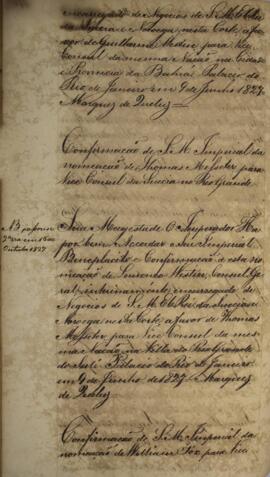 encarregado de Negocios de S. M. El Rei
da Suecia e Noruega, nesta Corte, a fa-
vor de Guilherme para Vice
Consul da mesma Nação na Cidade
e Provincia da Bahia. Palacio do
Rio de Janeiro em 9 de Junho 1827
Marquez de Queluz
Confirmação de S. M. Imperial da
nomeação de Thomas Messeter para
Vice Consul da Suecia no Rio Grande
Sua Magestade O Imperador Ha
por bem Accordar o Seu Imperial
Beneplacito e Confirmação a esta no-
meação de Lourenço Westin, Consul Ge-
ral, interinamente, encarregado de
Negocios de S. M. El Rei da Suecia e
Noroega nesta Corte, a favor de Thomas
Messeter para Vice Consul da mes-
ma Nação na Villa do Rio Grande
do Sul. Palacio do Rio de Janeiro
em 9 de Junho de 1827. Marquez
de Queluz
Confirmação de S. M. Imperial da
nomeação de William Fox para Vice
NB
em 16 de
Outubro 1827